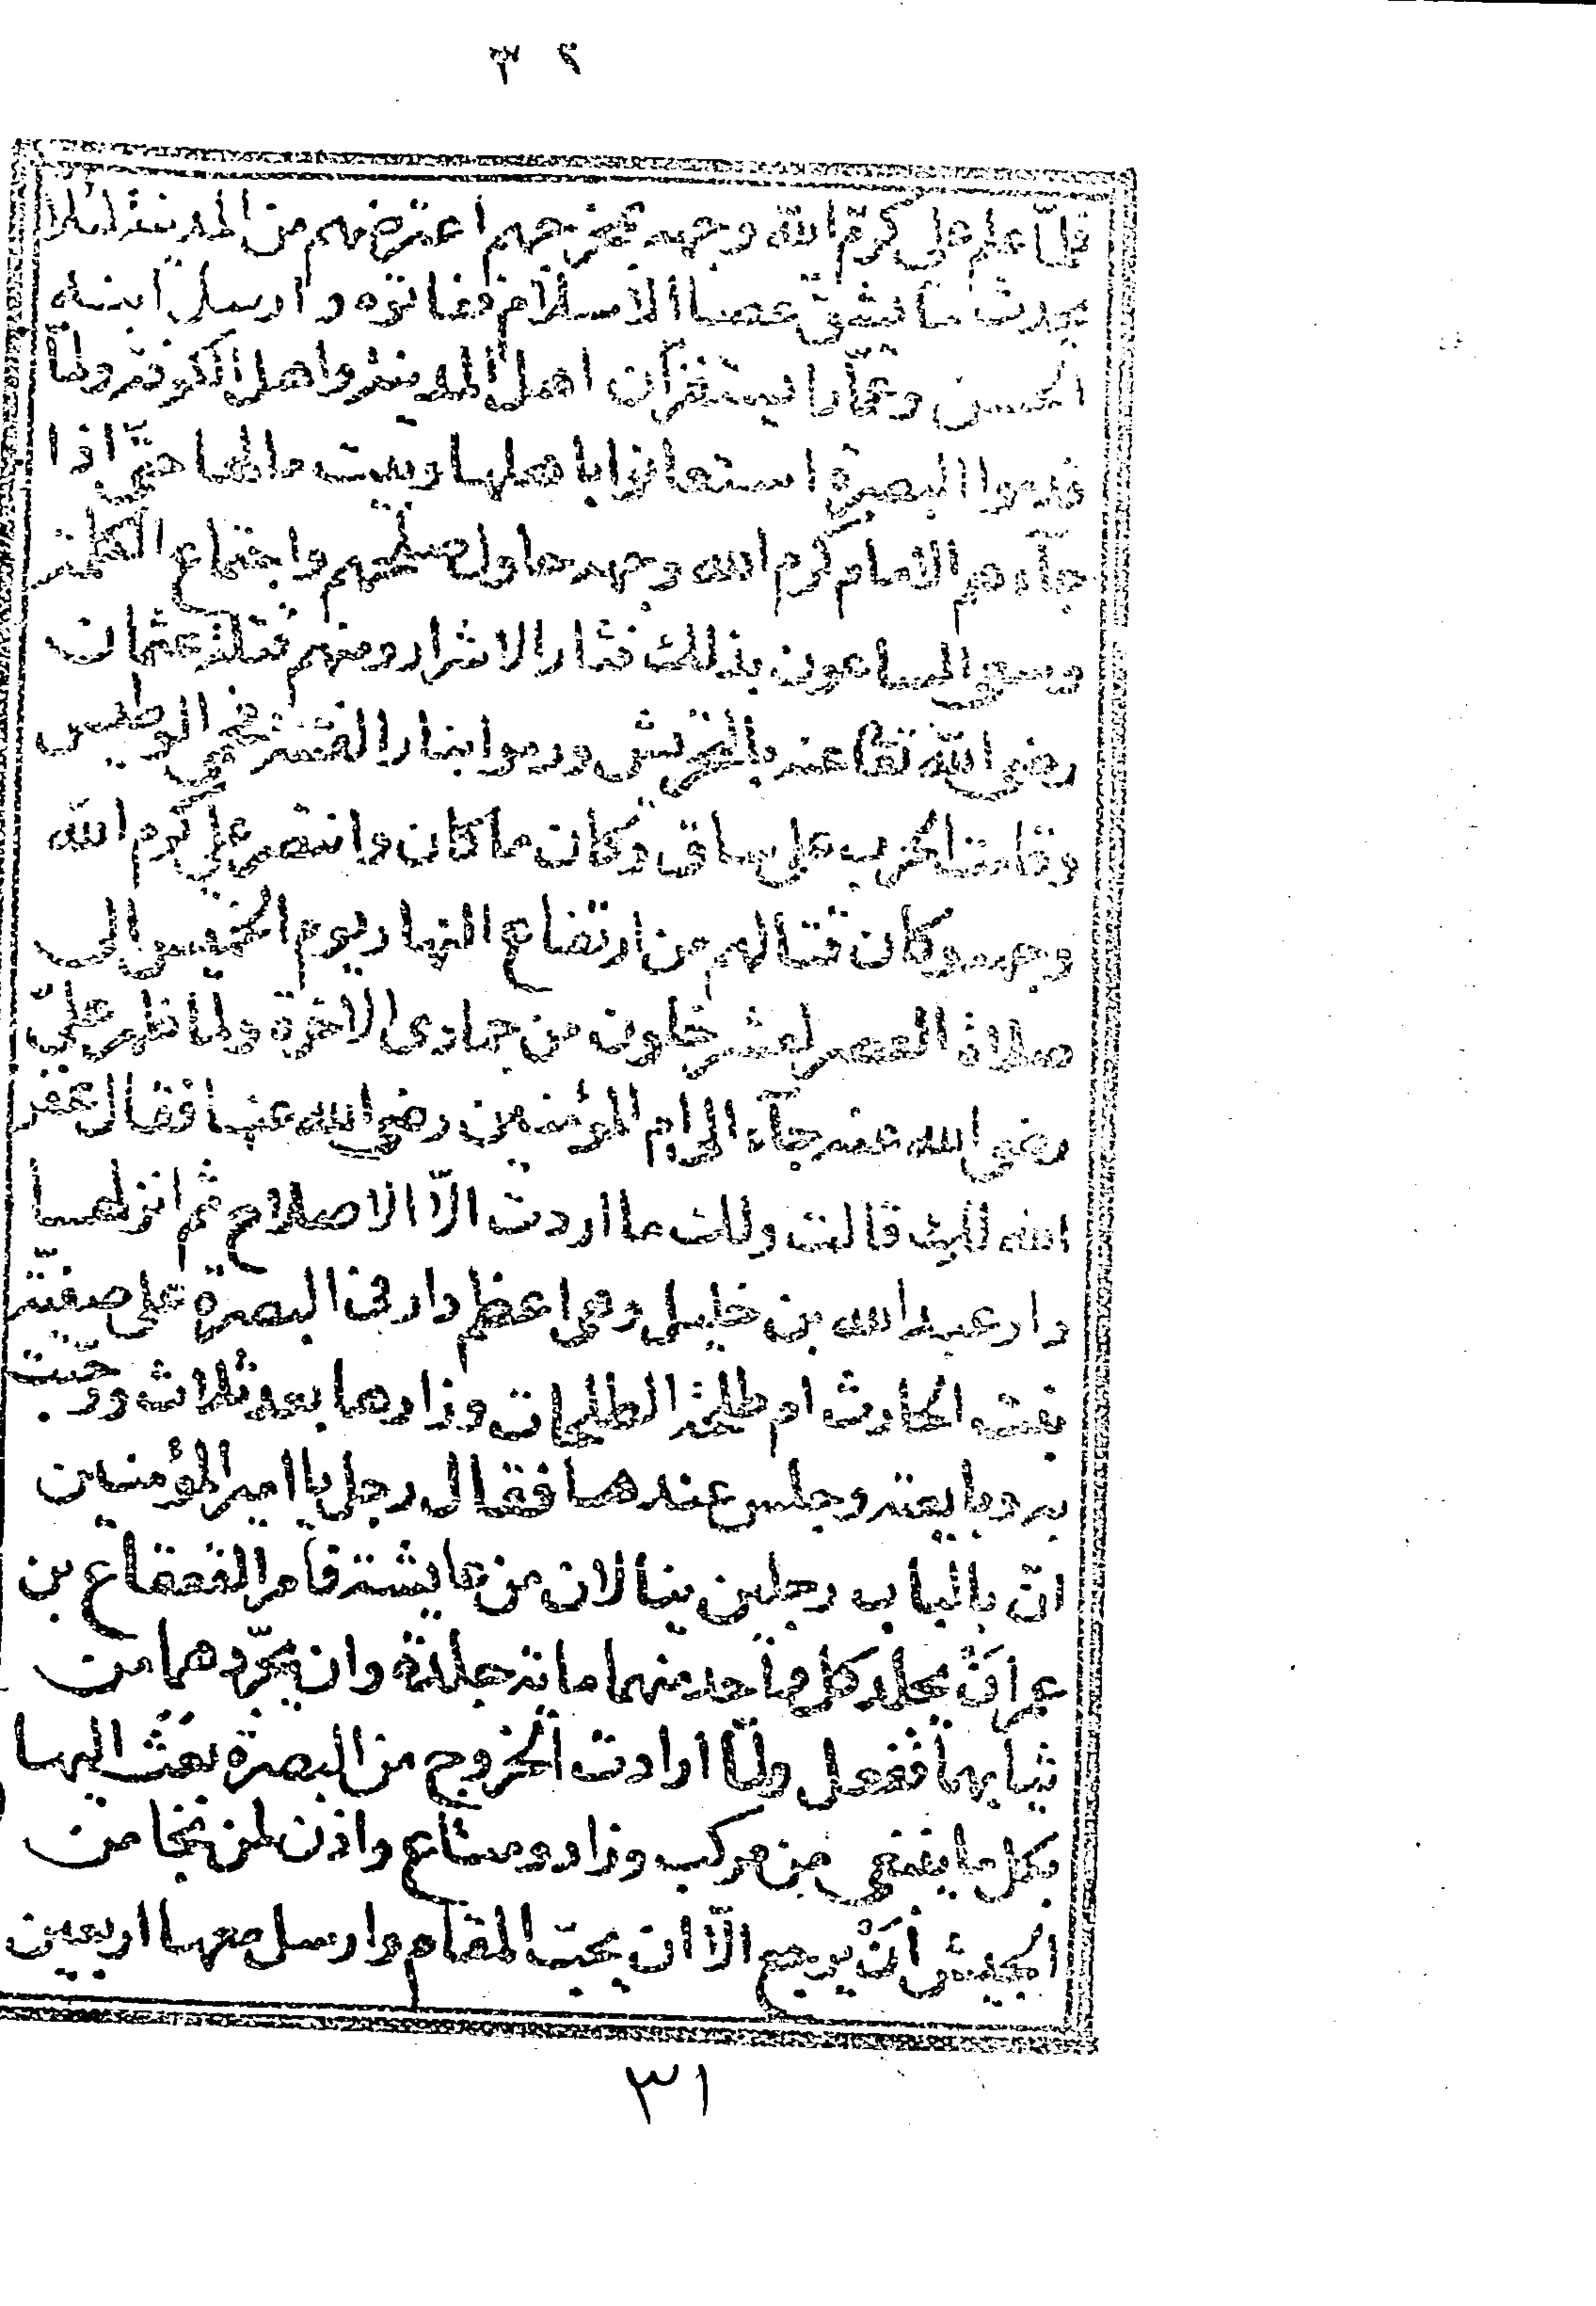 ٣٢
فلمّا علم علي كرّم الله وجهه بمخرجهم اعترضهم من المدينة لئلا
يحدث ما يشقّ عصا الاسلام ففاتوه وارسل ابنه
الحسن وعمّارا يستنفران اهل المدينة واهل الكوفة ولمّا
قدموا البصرة استعانوا باهلها وبيت مالها حتّى اذا
جآءهم الامام كرم الله وجهه حاول صلحهم واجتماع الكلمة
وسعى الساعون بذلك فثار الاشرار ومنهم قتلة عثمان
رضي الله تعالى عنه بالتحريش ورموا بنار الفتنة فحمي الوطيس
وقامت الحرب على ساق وكان ما كان وانتصر علي كرم الله
وجهه وكان قتالهم من ارتفاع النهار يوم الخميس الى
صلاة العصر لعشر خلون من جمادى الآخرة ولمّا ظهر عليّ
رضي الله عنه جآء الى ام المؤمنين رضي الله عنها فقال غفر
الله لك قالت ولك ما اردت الّا الاصلاح ثم انزلها
دار عبد الله بن خليل وهي اعظم دار في البصرة على صفيّة
بنت الحارث ام طلحة الطلحات وزارها بعد ثلاث ورحّبت
به وبايعته وجلس عندها فقال رجل يا امير المؤمنين
انّ بالباب رجلين ينالان من عايشة فامر القعقاع بن
عمر انْ يجلد كل واحد منهما مائة جلدة وان يجرّدهما من
ثيابهما ففعل ولمّا ارادت الخروج من البصرة بعث اليها
بكل ما ينبغي من مركب وزاد ومتاع واذن لمن نجا من
الجيش أنْ يرجع الّا ان يحبّ المقام وارسل معها اربعين
٣١